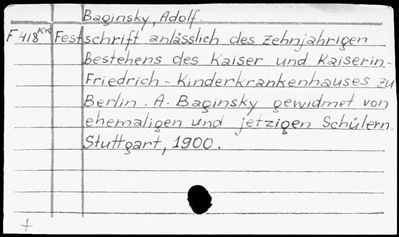 Baginsky, Adolf
F 418 KK Festschrift anlässlich des zehnjährigen
Bestehens des Kaiser und Kaiserin-
Friedrich-Kinderkrankenhauses zu
Berlin. A. Baginsky gewidmet von
ehemaligen und jetzigen Schülern.
Stuttgart, 1900.
+